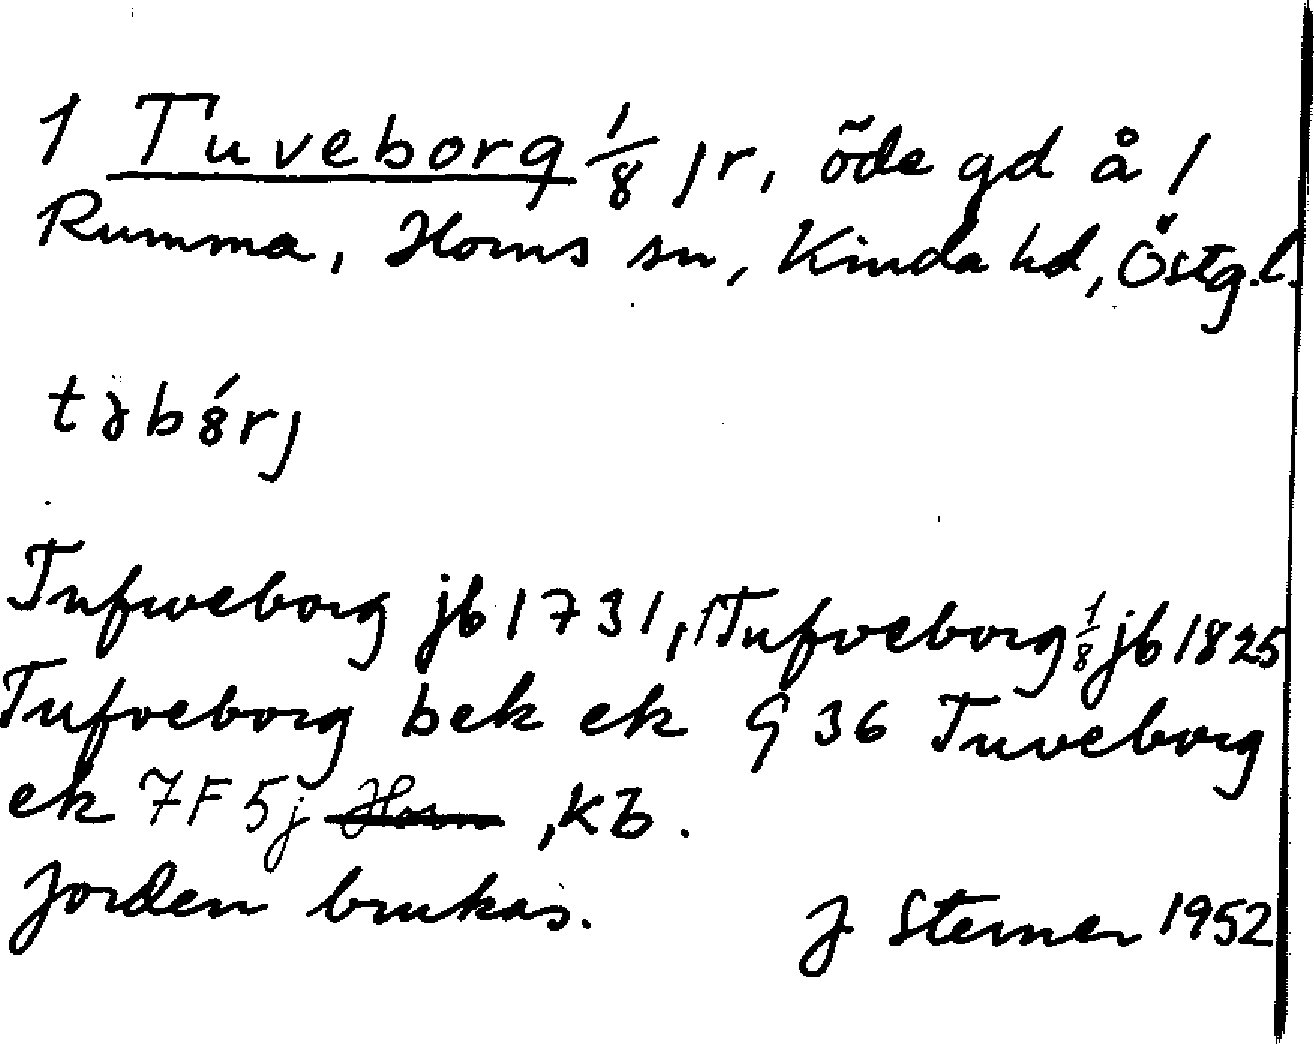 1 Tuveborg 1/8 1r, öde gd å 1
Rumma, Horns sn, Kinda hd, Östg.l.
Tufweborg jb 1731, 1 Tufveborg 1/8 jb 1825
Tufveborg bek ek G 36 Tuveborg
ek 7F5j Horn, KB.
Jorden brukas. J Sterner 1952